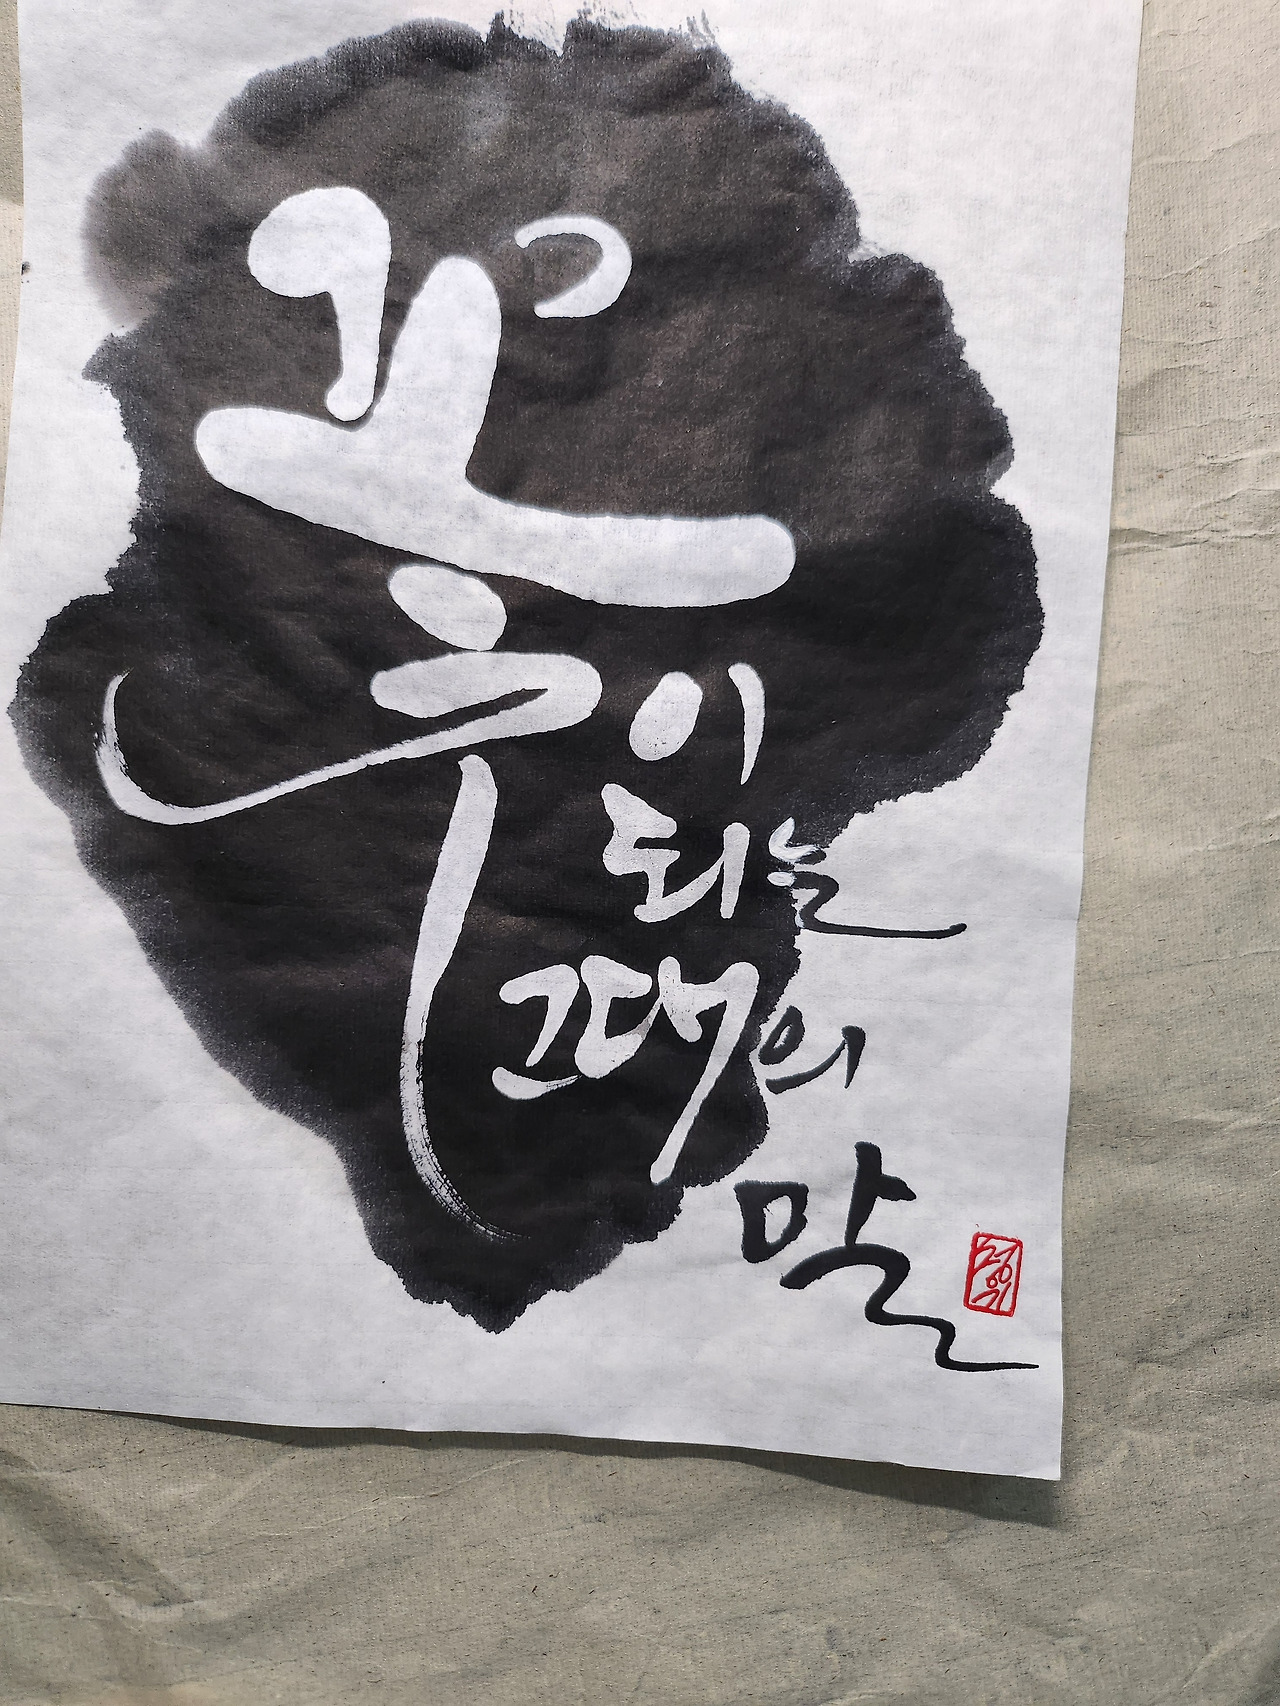 꽃이
되는
그때의
말